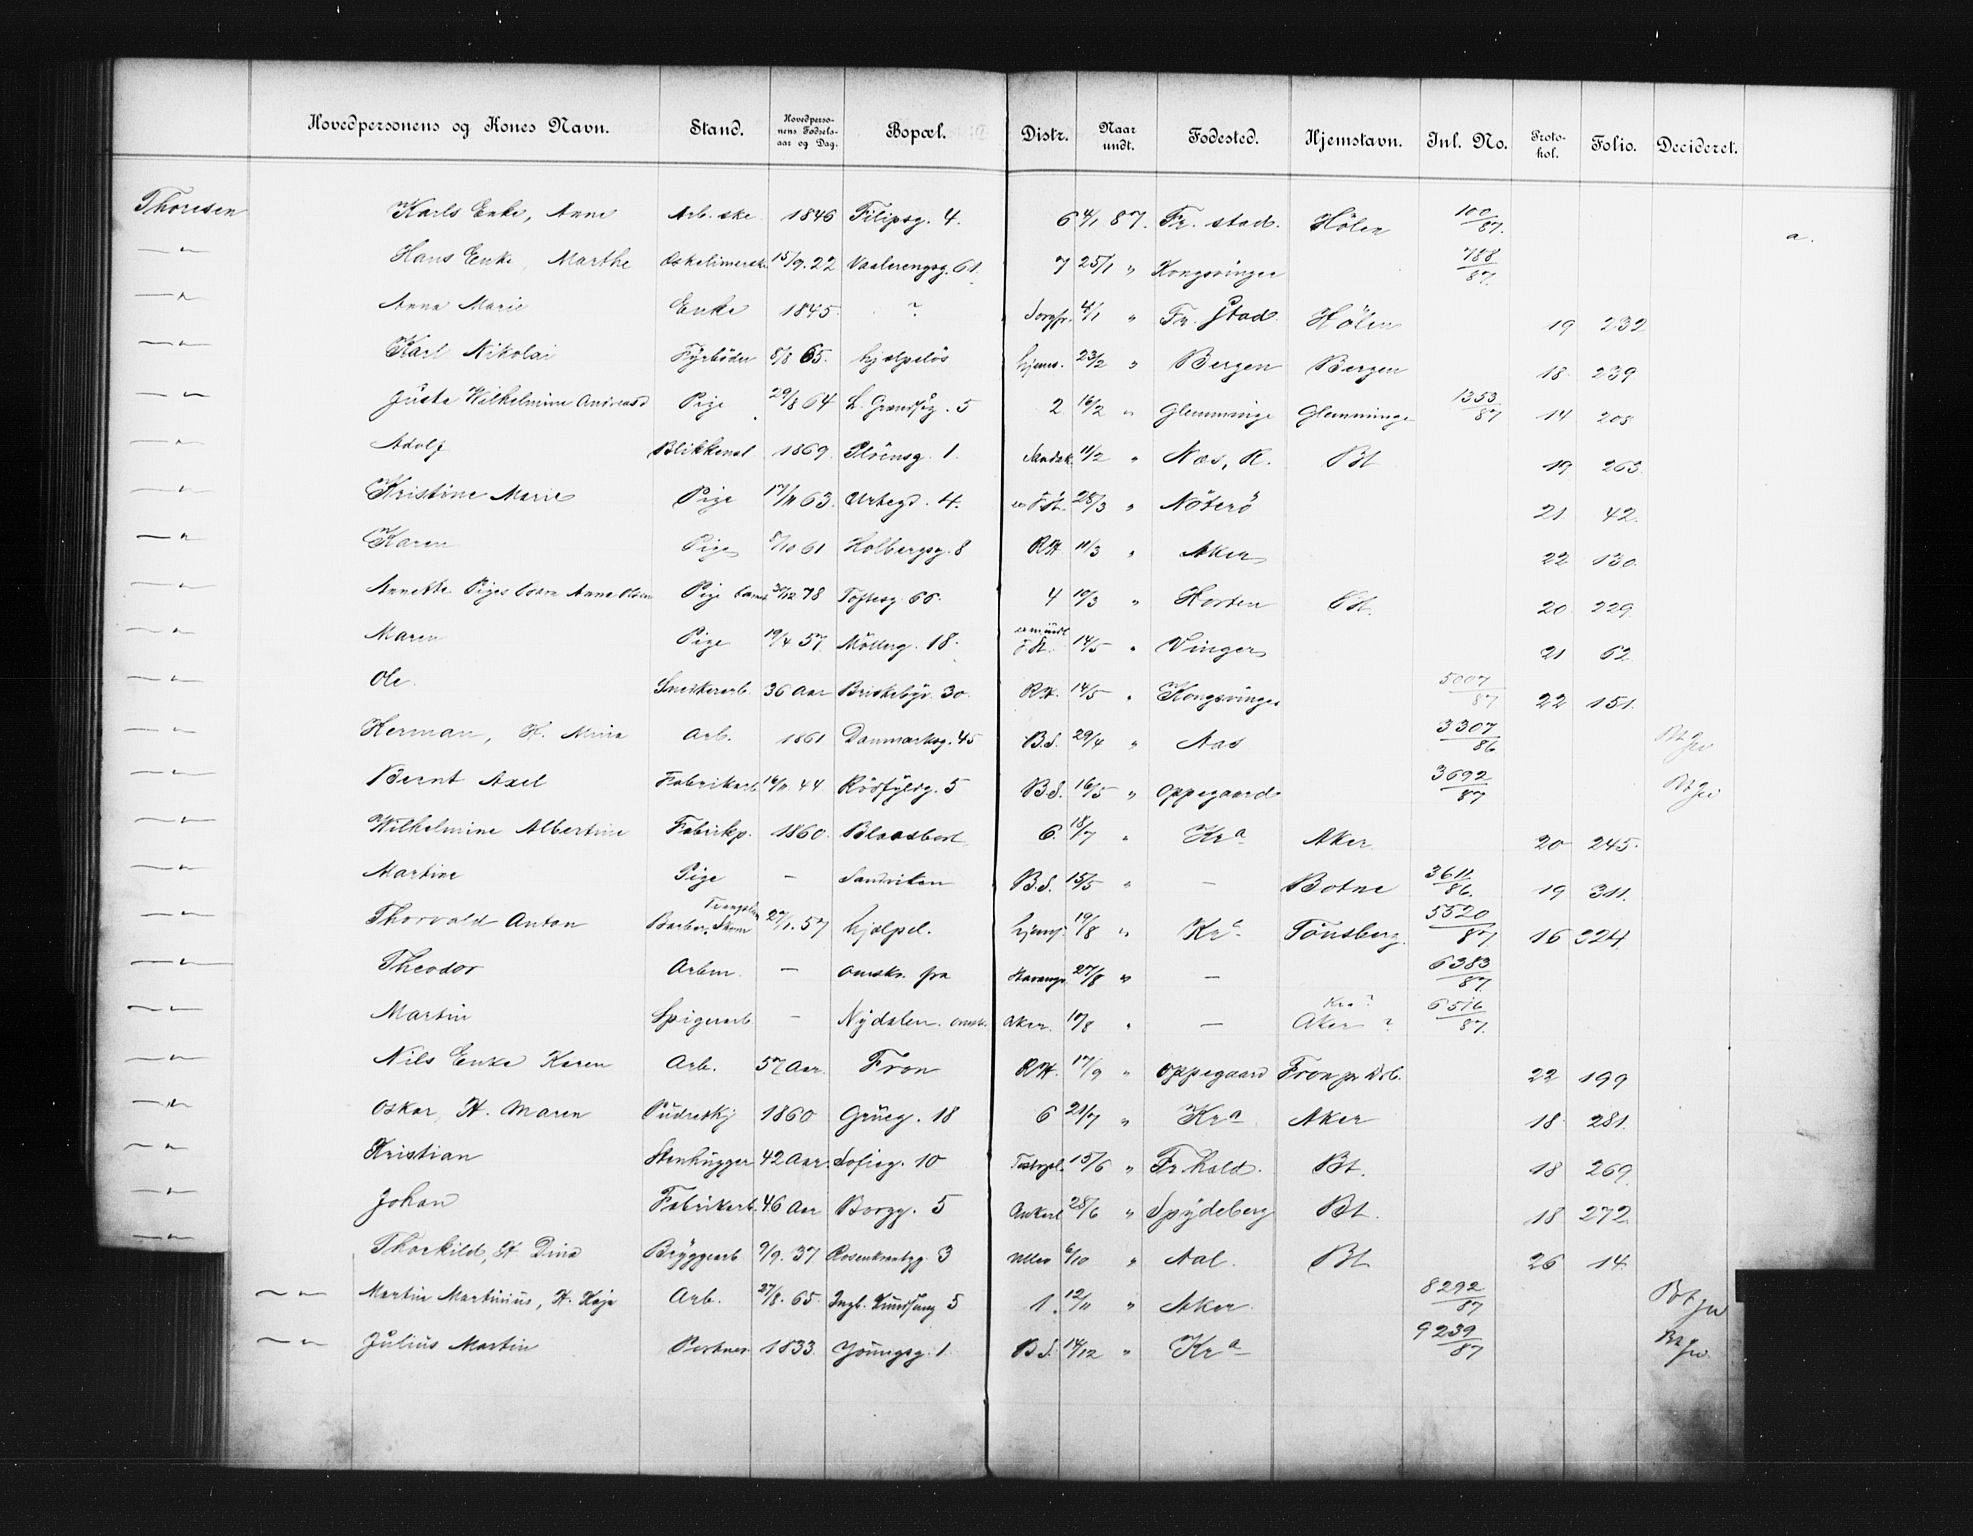 Hovedpersonens og Kones Navn. Stand. Hovedpersonens Fødselsaar og Dag. Bopæl. Distr. Naar undt. Fødested. Hjemstavn. Inl. No. Protokol. Folio. Decideret.
Thoresen Karls Enke, Anne Arb.ske 1846 Filipsg. 4. 6 4/1 87. Fr. stad. Hölen 100/87. a.
—"— Hans Enke, Marthe 15/9. 22 Vaalerengsg. 61. 7 25/1 " Kongsvinger 788/87.
—"— Anna Marie Enke 1845 ? 4/1 " Fr. Stad. Hölen 19 232
—"— Karl Nikolai Fyrböder 8/8 65. hjælpelös hjems. 23/2 " Bergen Bergen 18 239
—"— Justa Wilhelmine Andreasd Pige 29/8 64 L. Grændseg. 5 2 16/2 " Glemminge Glemminge 1353/87 14 208
—"— Adolf Blikkensl 1869. Plöensg. 1. 11/2 " Næs, R. Bt 19 263
—"— Kristine Marie Pige 17/11 63. Urtegd. 4. F St. 28/3 " Nöterö 21 42.
—"— Karen Pige 8/10 61 Holbergsg. 8 RH. 11/3 " Aker 22 130.
—"— Annette Piges Barn Anna Olsen Pige barn 30/12 78 Toftesg. 66. 4 10/3 " Horten Bt. 20 229
—"— Maren Pige 19/4 57 Möllerg. 18. F St. 14/5 " Vinger 21 62
—"— Ole. Snekerarb 36 Aar Briskebyv. 30. RH. 14/5 " Kongsvinger 5007/87 22 151.
—"— Herman, H. Mina Arb. 1861 Danmarksg. 45 B.S. 29/4 " Aas 3307/86 Bt
—"— Bernt Axel Fabrikarb 16/11 44 Rödfyldg. 5 B.S. 16/5 " Oppegaard 3692/87 Bt
—"— Wilhelmine Albertine Fabrikp. 1860. 6. 18/7 " Kra Aker 20 245.
—"— Martine Pige — Sandviken B.S. 15/5 " — Botne 3611/86. 19 311.
—"— Thorvald Anton Barber, 27/1. 57 hjælpel. hjemf. 19/8 " Kra Tönsberg. 5520/87. 16 324
—"— Theodor Arbm. — omskr. fra Stavanger 27/8 " — 6383/87.
—"— Martin Spigerarb — Nydalen. omsk. Aker. 10/8 " — Kra? Aker? 6516/87.
—"— Nils Enke Karen Arb. 57 Aar. Fron RH. 17/9 " Oppegaard Fron pr Drb. 22 199
—"— Oskar, H. Maren Pudretkj 1860 Grueg. 18 6 21/7 " Kra Aker 18 281.
—"— Kristian Stenhugger 42 Aar. Sofieg. 10 15/6 " Fr.hald. Bt. 18 269.
—"— Johan Fabrikarb. 46 Aar Borgg. 5 Ankerl 28/6 " Spydeberg Bt. 18 272
—"— Thorkild, H Dina Bryggearb 9/9. 37. Rosenkrantzg 3 Ullev 6/10 " Aal. Bt 26 14.
—"— Martin Martinius, H. Kaja Arb. 27/8. 65. 5 1. 12/11 " Aker. 8292/87 Bt
—"— Julius Martin Portner 1833. Youngsg. 1. B.S. 14/12 " Kra 9239/87 Bt